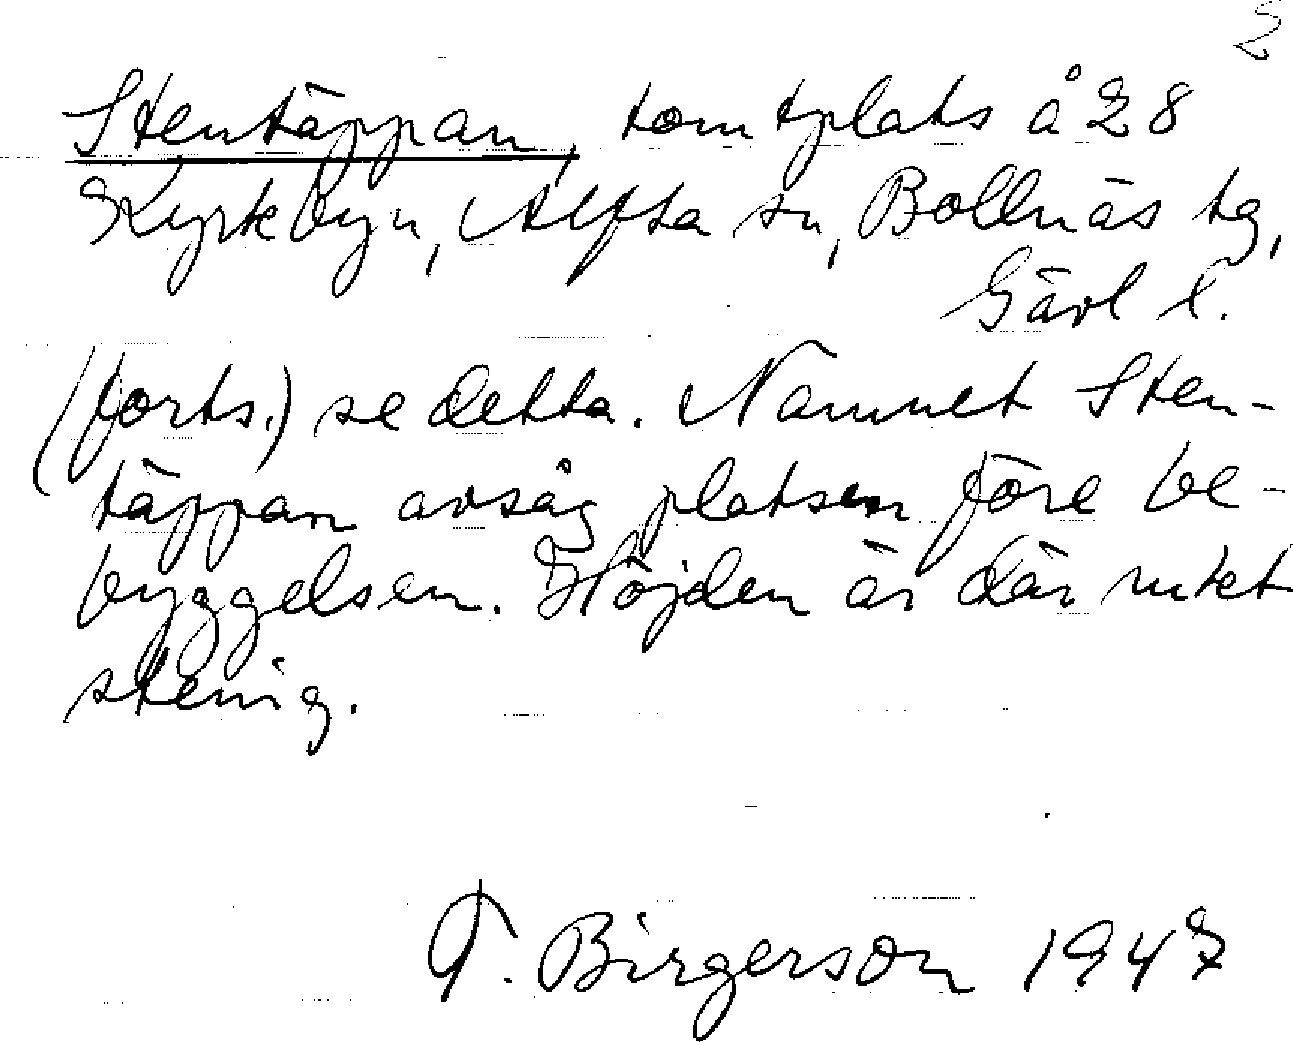 2
Stentäppan, tomtplats å 28
Kyrkbyn, Alfta sn, Bollnäs tg,
Gävl l.
(forts.) se detta. Namnet Sten-
täppan avsåg platsen före be-
byggelsen. Höjden är där mkt
stenig.
T. Birgerson 1947